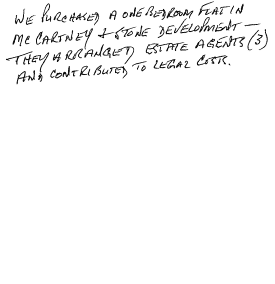 WE PURCHASED A ONE BEDROOM FLAT IN
MC CARTNEY & STONE DEVELOPMENT —
THEY ARRANGED ESTATE AGENTS (3)
AND CONTRIBUTED TO LEGAL COSTS.